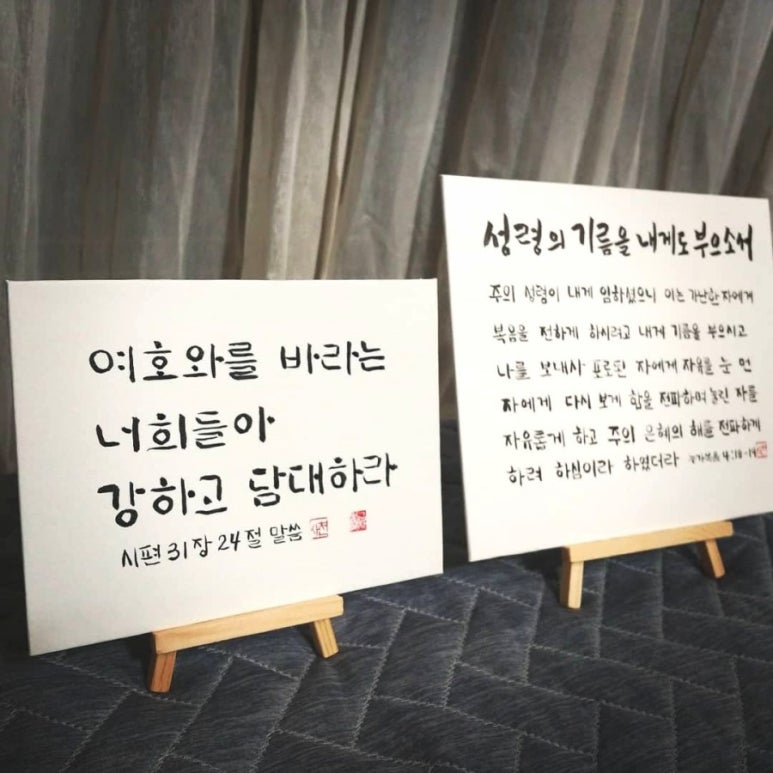 여호와를 바라는
너희들아
강하고 담대하라
시편 31장 24절 말씀
성령의 기름을 내게도 부으소서
주의 성령이 내게 임하셨으니 이는 가난한 자에게
복음을 전하게 하시려고 내게 기름을 부으시고
나를 보내사 포로된 자에게 자유를 눈 먼
자에게 다시 보게 함을 전파하며 눌린 자를
자유롭게 하고 주의 은혜의 해를 전파하게
하려 하심이라 하였더라 누가복음 4:18-19